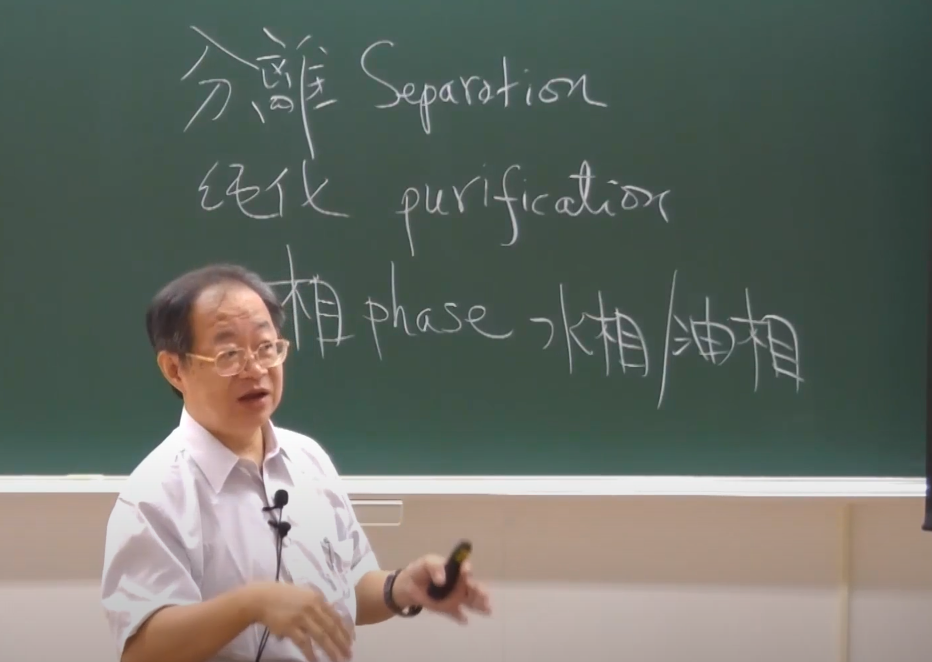 分離 Separation
纯化 purification
相 phase 水相/油相